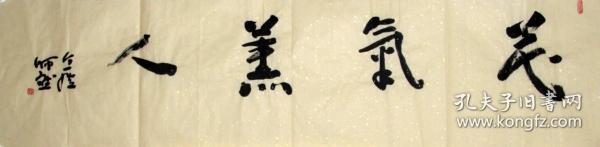 花氣薰人
孔夫子旧书网
www.kongfz.com